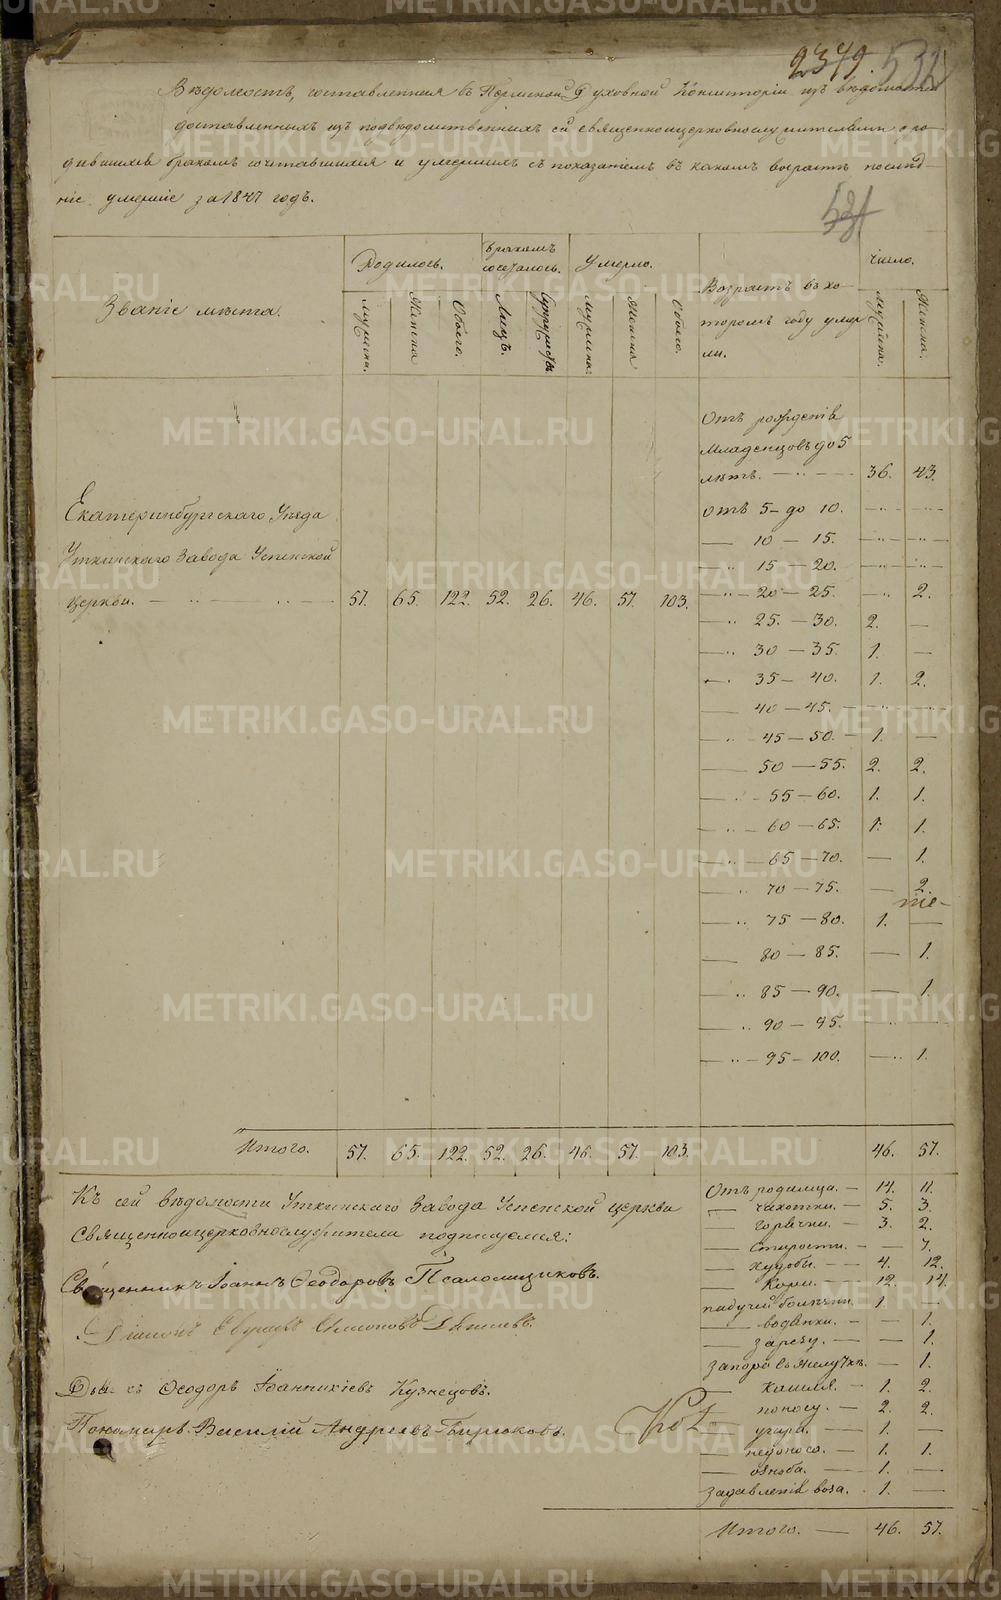 2379. 532
Вѣдомость, составленная въ Пермской Духовной Консисторіи изъ вѣдомостей
доставленныхъ изъ подвѣдомственныхъ ей священноцерковнослужителями о ро-
дившихся бракомъ сочтавшихся и умершихъ съ показателемъ въ какомъ возрастѣ послѣд-
ніе умершіе за 1847 годъ.
531
Званіе мѣста.
Родилось.
Бракомъ сочеталось.
Умерло.
Возрастъ въ ко-
торомъ году умер
ли.
Число.
Мужеска.
Женска
Обоего.
Лицъ.
Супружествъ
Мужеска.
Женска
Обоего.
Мужеска.
Женска.
Отъ рожденія
Младенцовъ до 5
лѣтъ. — 36. 43.
Отъ 5 – до 10. — —
— 10 — 15. — —
— 15 — 20. — —
Екатеринбургскаго Уѣзда
Уткинскаго Завода Успенской
церкви. — 57. 65. 122. 52. 26. 46. 57. 103.
— 20 — 25. — 2.
— 25. — 30. 2. —
— 30 — 35. 1. —
— 35 — 40. 1. 2.
— 40 — 45. — —
— 45 — 50. — 1. —
— 50 — 55. 2. 2.
— 55 — 60. 1. 1.
— 60 — 65. 1. 1.
— 65 — 70. — 1.
— 70 — 75. — 2.
— 75 — 80. 1. —
— 80 — 85. — 1.
— 85 — 90. — 1.
— 90 — 95. — —
— 95 — 100. — 1.
Итого. 57. 65. 122. 52. 26. 46. 57. 103. 46. 57.
Къ сей вѣдомости Уткинскаго Завода Успенской церкви
Священноицерковнослужители подписуемся:
Священникъ Іоаннъ Ѳеодоровъ Псаломщиковъ.
Діаконъ
Дьячекъ Ѳеодоръ Іоанникіевъ Кузнецовъ.
Пономарь Василій Андреевъ Бирюковъ.
Отъ родимца. — 14. 11.
— чахотки. — 5. 3.
— горячки. — 3. 2.
— Старости. — — 7.
— худобы. — 4. 12.
— Кори. — 12. 14.
падучей болѣзни 1. —
— водянки. — — 1.
— зарезу. — — 1.
Запора въ желудкѣ. — 1.
— Кашля. — 1. 2.
— поносу. — 2. 2.
— угара. — 1. —
— недоносо. — 1. 1.
— озноба. — 1. —
Задавленія воза. 1. —
Итого. — 46. 57.
METRIKI.GASO-URAL.RU